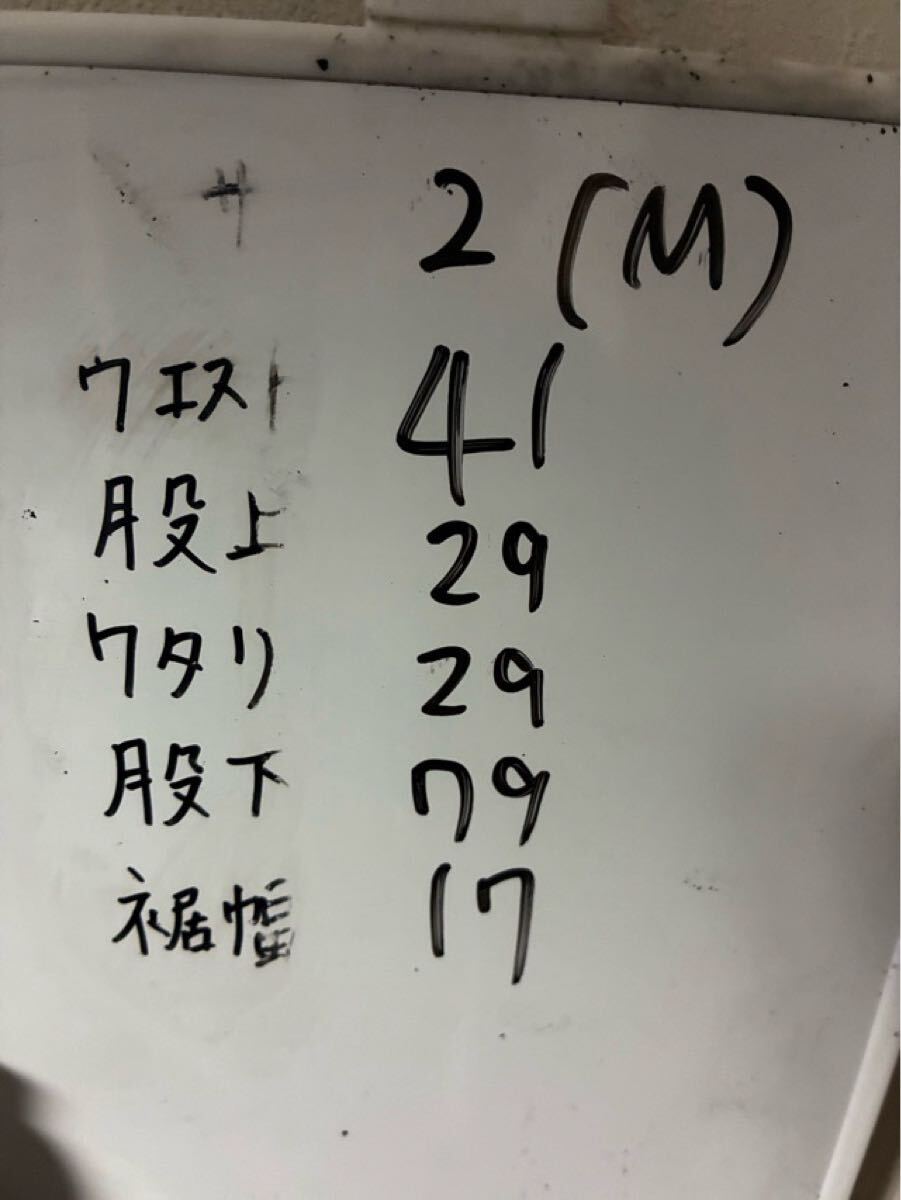 サ 2 (M)
ウエスト 41
股上 29
ワタリ 29
股下 79
裾幅 17